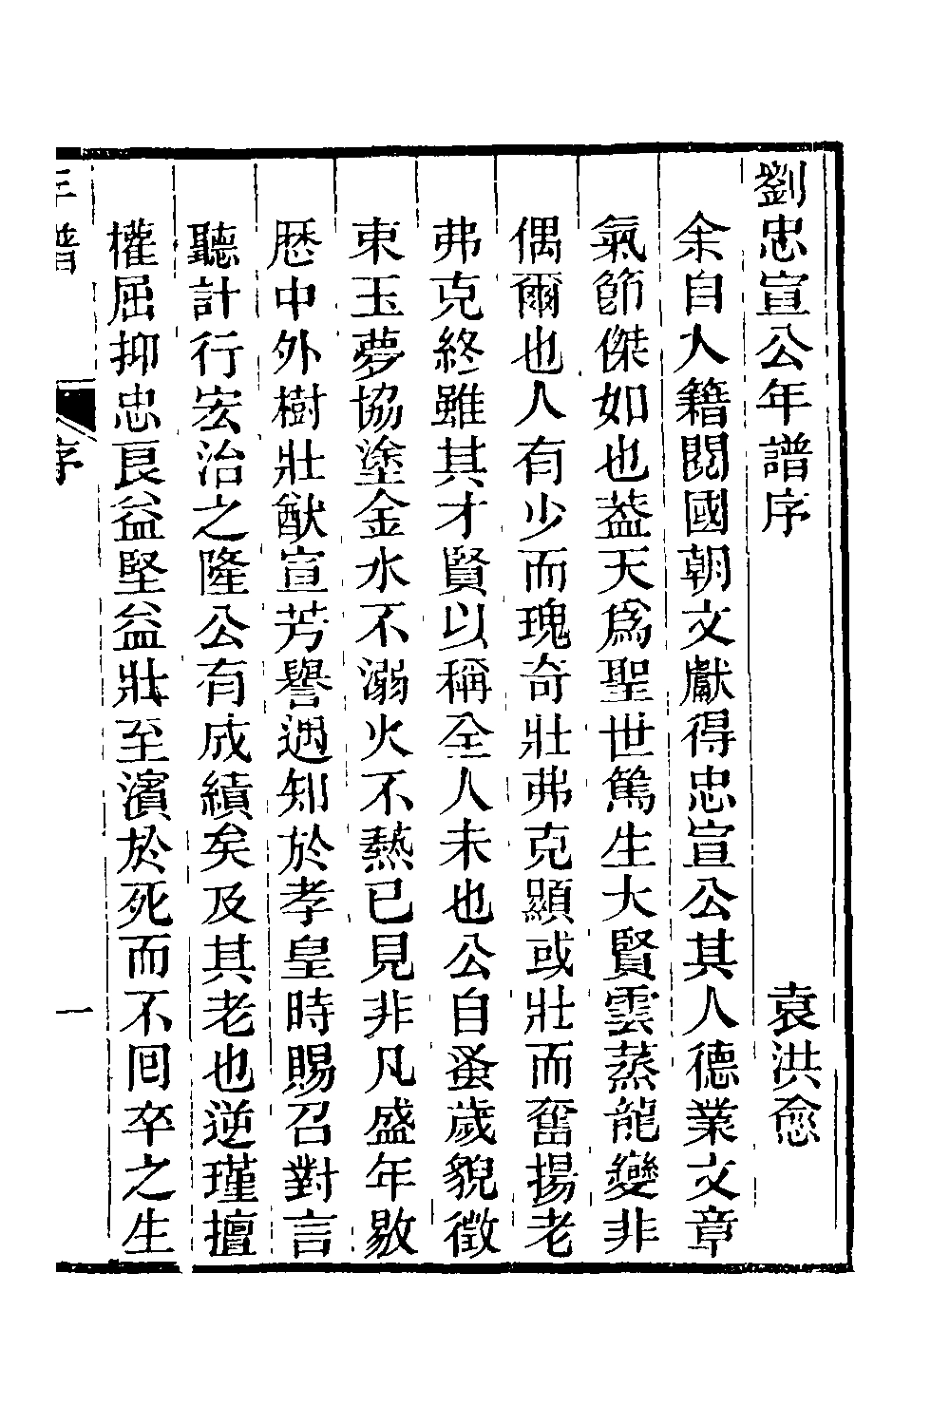 劉忠宣公年譜序 袁洪愈
余自人籍閱國朝文獻得忠宣公其人德業文章
氣節傑如也葢天爲聖世篤生大賢雲蒸龍變非
偶爾也人有少而瑰奇壯弗克顯或壯而奮揚老
弗克終雖其才賢以稱全人未也公自蚤歲貌徵
東玉夢協塗金水不溺火不爇已見非凡盛年敭
歷中外樹壯猷宣芳譽遇知於孝皇時賜召對言
聽計行宏治之隆公有成績矣及其老也逆瑾擅
權屈抑忠良益堅益壯至濱於死而不囘卒之生
年譜 序 一